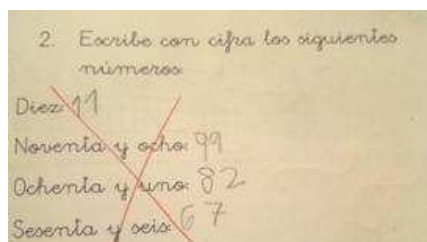 2. Escribe con cifra los siguientes
números:
Diez: 11
Noventa y ocho: 99
Ochenta y uno: 82
Sesenta y seis: 67